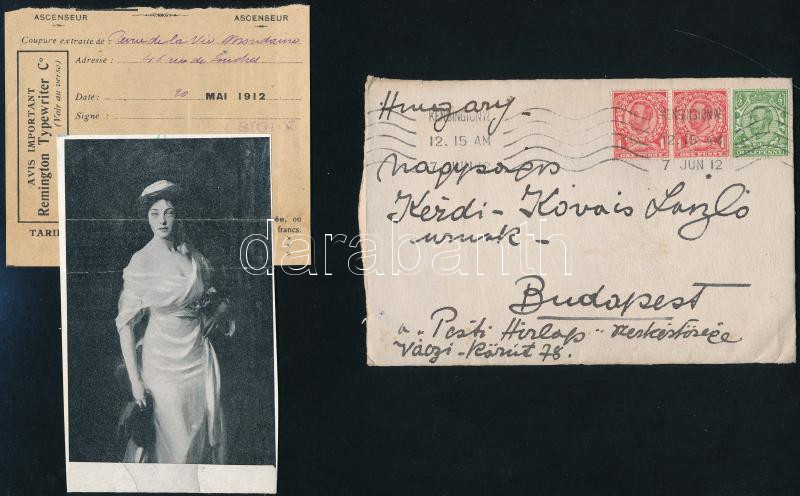 ASCENSEUR ASCENSEUR
Coupure extraite de Revue de la Vie Mondaine
Adresse : 46 rue de
Date : 20 MAI 1912
Signé :
AVIS IMPORTANT
Remington Typewriter Co
(Voir au verso)
TARIF
ou
francs.
Hungary
KENSINGTON W.
12. 15 AM
7 JUN 12
KENSINGTON W.
12. 15 AM
7 JUN 12
ONE PENNY
ONE PENNY
HALFPENNY
Nagyságos
Kézdi-Kovács László
úrnak
Budapest
a „Pesti Hirlap" szerkesztősége
Váczi-Körút 78.
darabanth